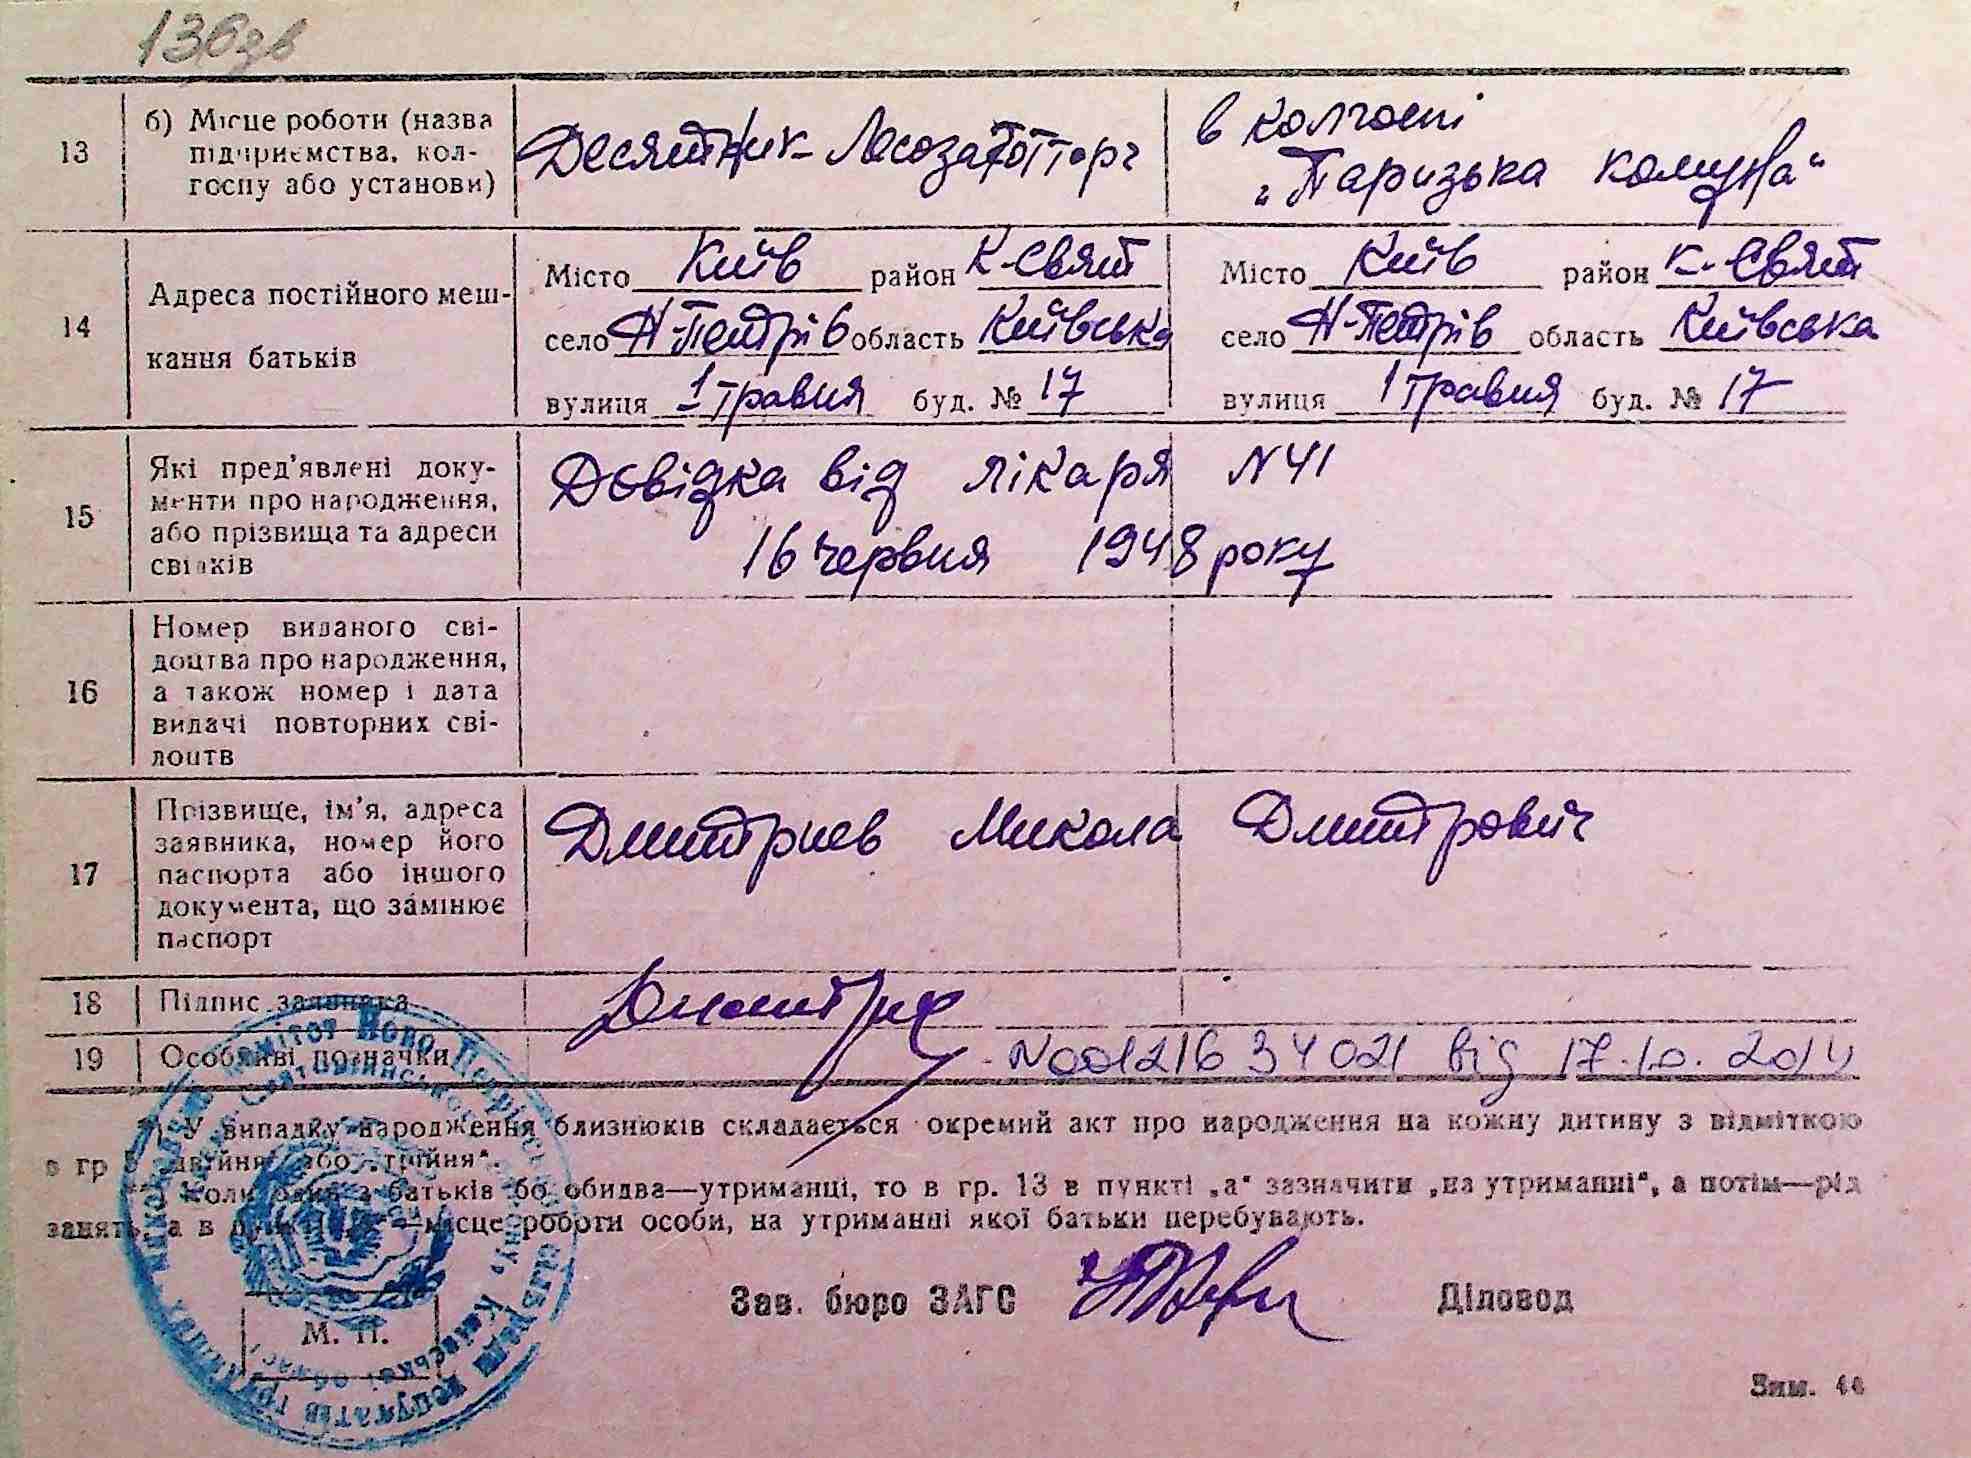 136зв
13
б) Місце роботи (назва
підприємства, кол-
госпу або установи)
Десятник
в колгоспі
„Паризька комуна“
14
Адреса постійного меш-
кання батьків
Місто Київ район К-Свят
село Н-Петрів область Київська
вулиця 1 травня буд. № 17
Місто Київ район К.-Свят
село Н-Петрів область Київська
вулиця 1 травня буд. № 17
15
Які пред'явлені доку-
менти про народження,
або прізвища та адреси
свідків
Довідка від лікаря N 41
16 червня 1948 року
16
Номер виданого сві-
доцтва про народження,
а також номер і дата
видачі повторних сві-
доцтв
17
Прізвище, ім'я, адреса
заявника, номер його
паспорта або іншого
документа, що замінює
паспорт
Дмитриев Микола Дмитрович
18
Підпис заявника
19
Особливі позначки
N00121634021 від 17.10.2014
*) У випадку народження близнюків складається окремий акт про народження на кожну дитину з відміткою
в гр 5 „двійня“ або „трійня“.
**) Коли один з батьків або обидва—утриманці, то в гр. 13 в пункті „а“ зазначити „на утриманні“, а потім—рід
занять, а в —місце роботи особи, на утриманні якої батьки перебувають.
Зав. бюро ЗАГС
Діловод
М. П.
Зим.